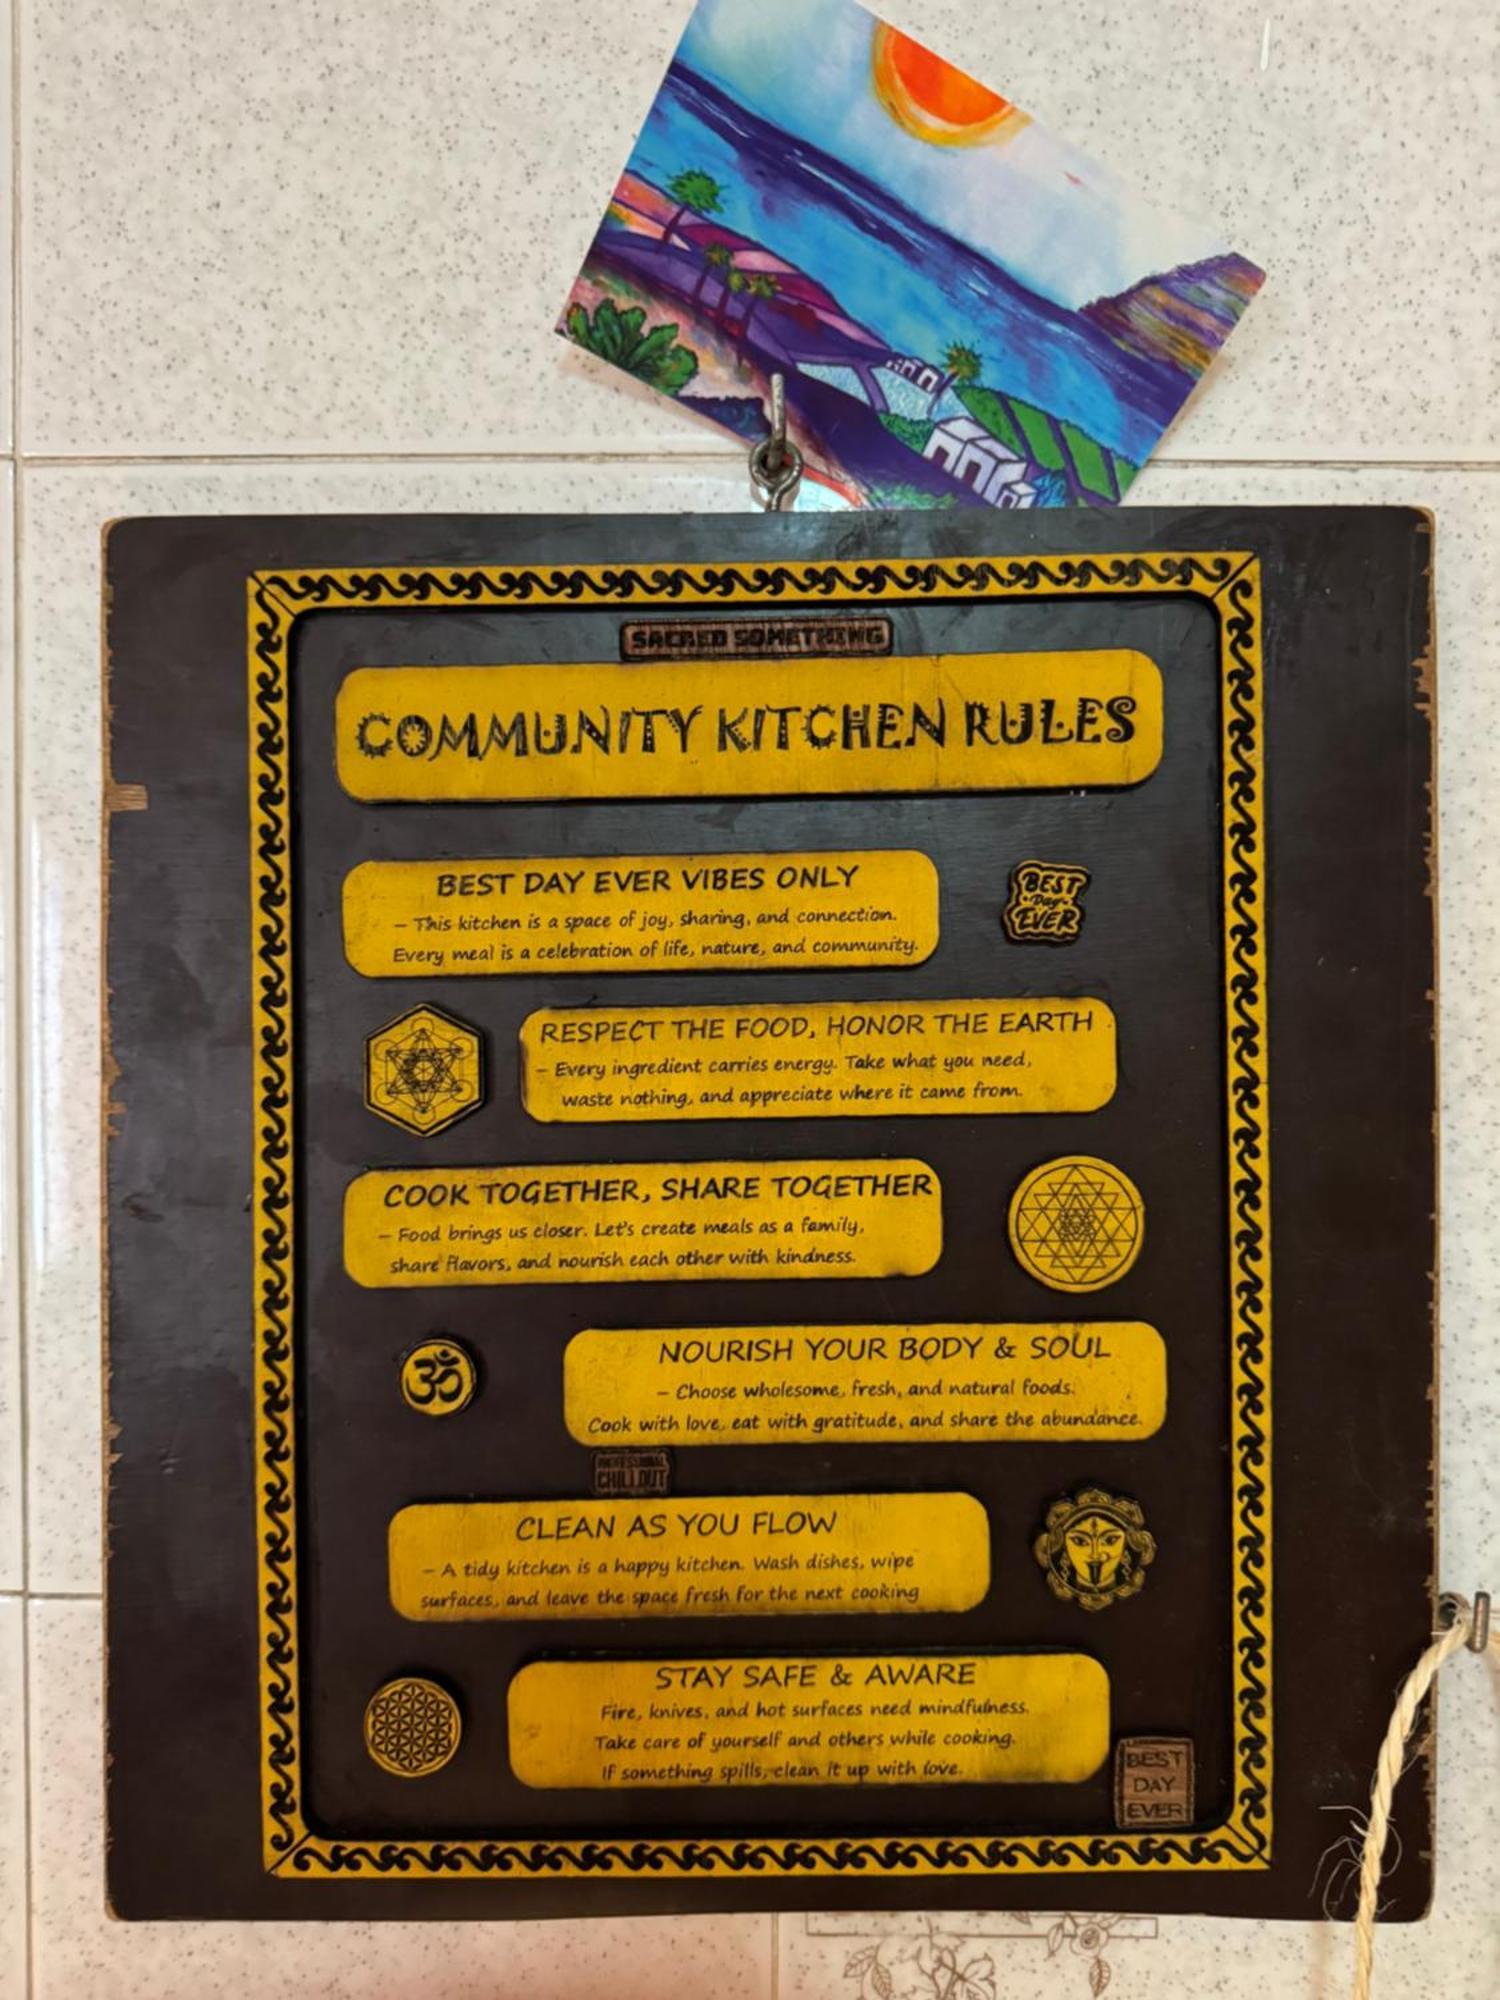 SACRED SOMETHING
COMMUNITY KITCHEN RULES
BEST DAY EVER VIBES ONLY
– This kitchen is a space of joy, sharing, and connection.
Every meal is a celebration of life, nature, and community.
BEST
Day
EVER
RESPECT THE FOOD, HONOR THE EARTH
– Every ingredient carries energy. Take what you need,
waste nothing, and appreciate where it came from.
COOK TOGETHER, SHARE TOGETHER
– Food brings us closer. Let's create meals as a family,
share flavors, and nourish each other with kindness.
ॐ
NOURISH YOUR BODY & SOUL
– Choose wholesome, fresh, and natural foods.
Cook with love, eat with gratitude, and share the abundance.
PROFESSIONAL
CHILLOUT
CLEAN AS YOU FLOW
– A tidy kitchen is a happy kitchen. Wash dishes, wipe
surfaces, and leave the space fresh for the next cooking
STAY SAFE & AWARE
Fire, knives, and hot surfaces need mindfulness.
Take care of yourself and others while cooking.
If something spills, clean it up with love.
BEST
DAY
EVER